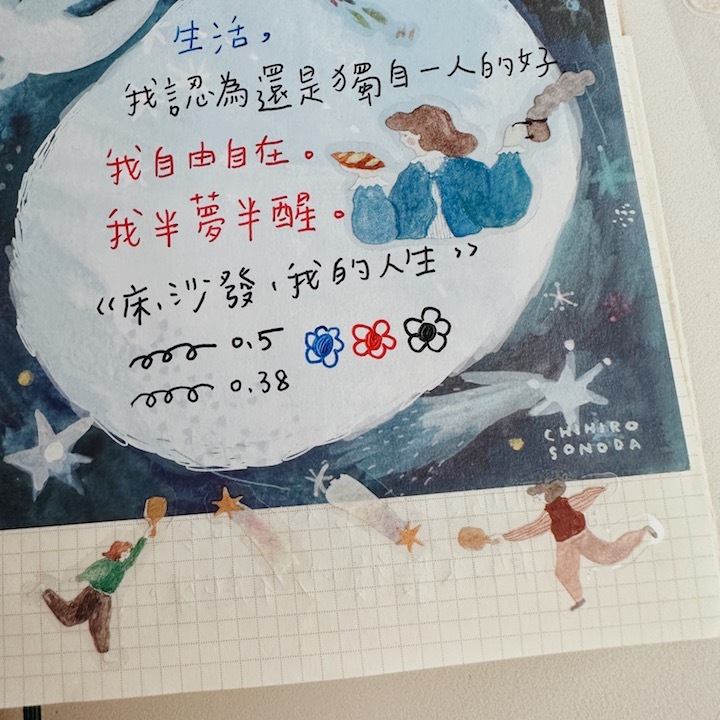 生活，
我認為還是獨自一人的好
我自由自在。
我半夢半醒。
《床、沙發、我的人生》
0.5
0.38
CHIHIRO
SONODA